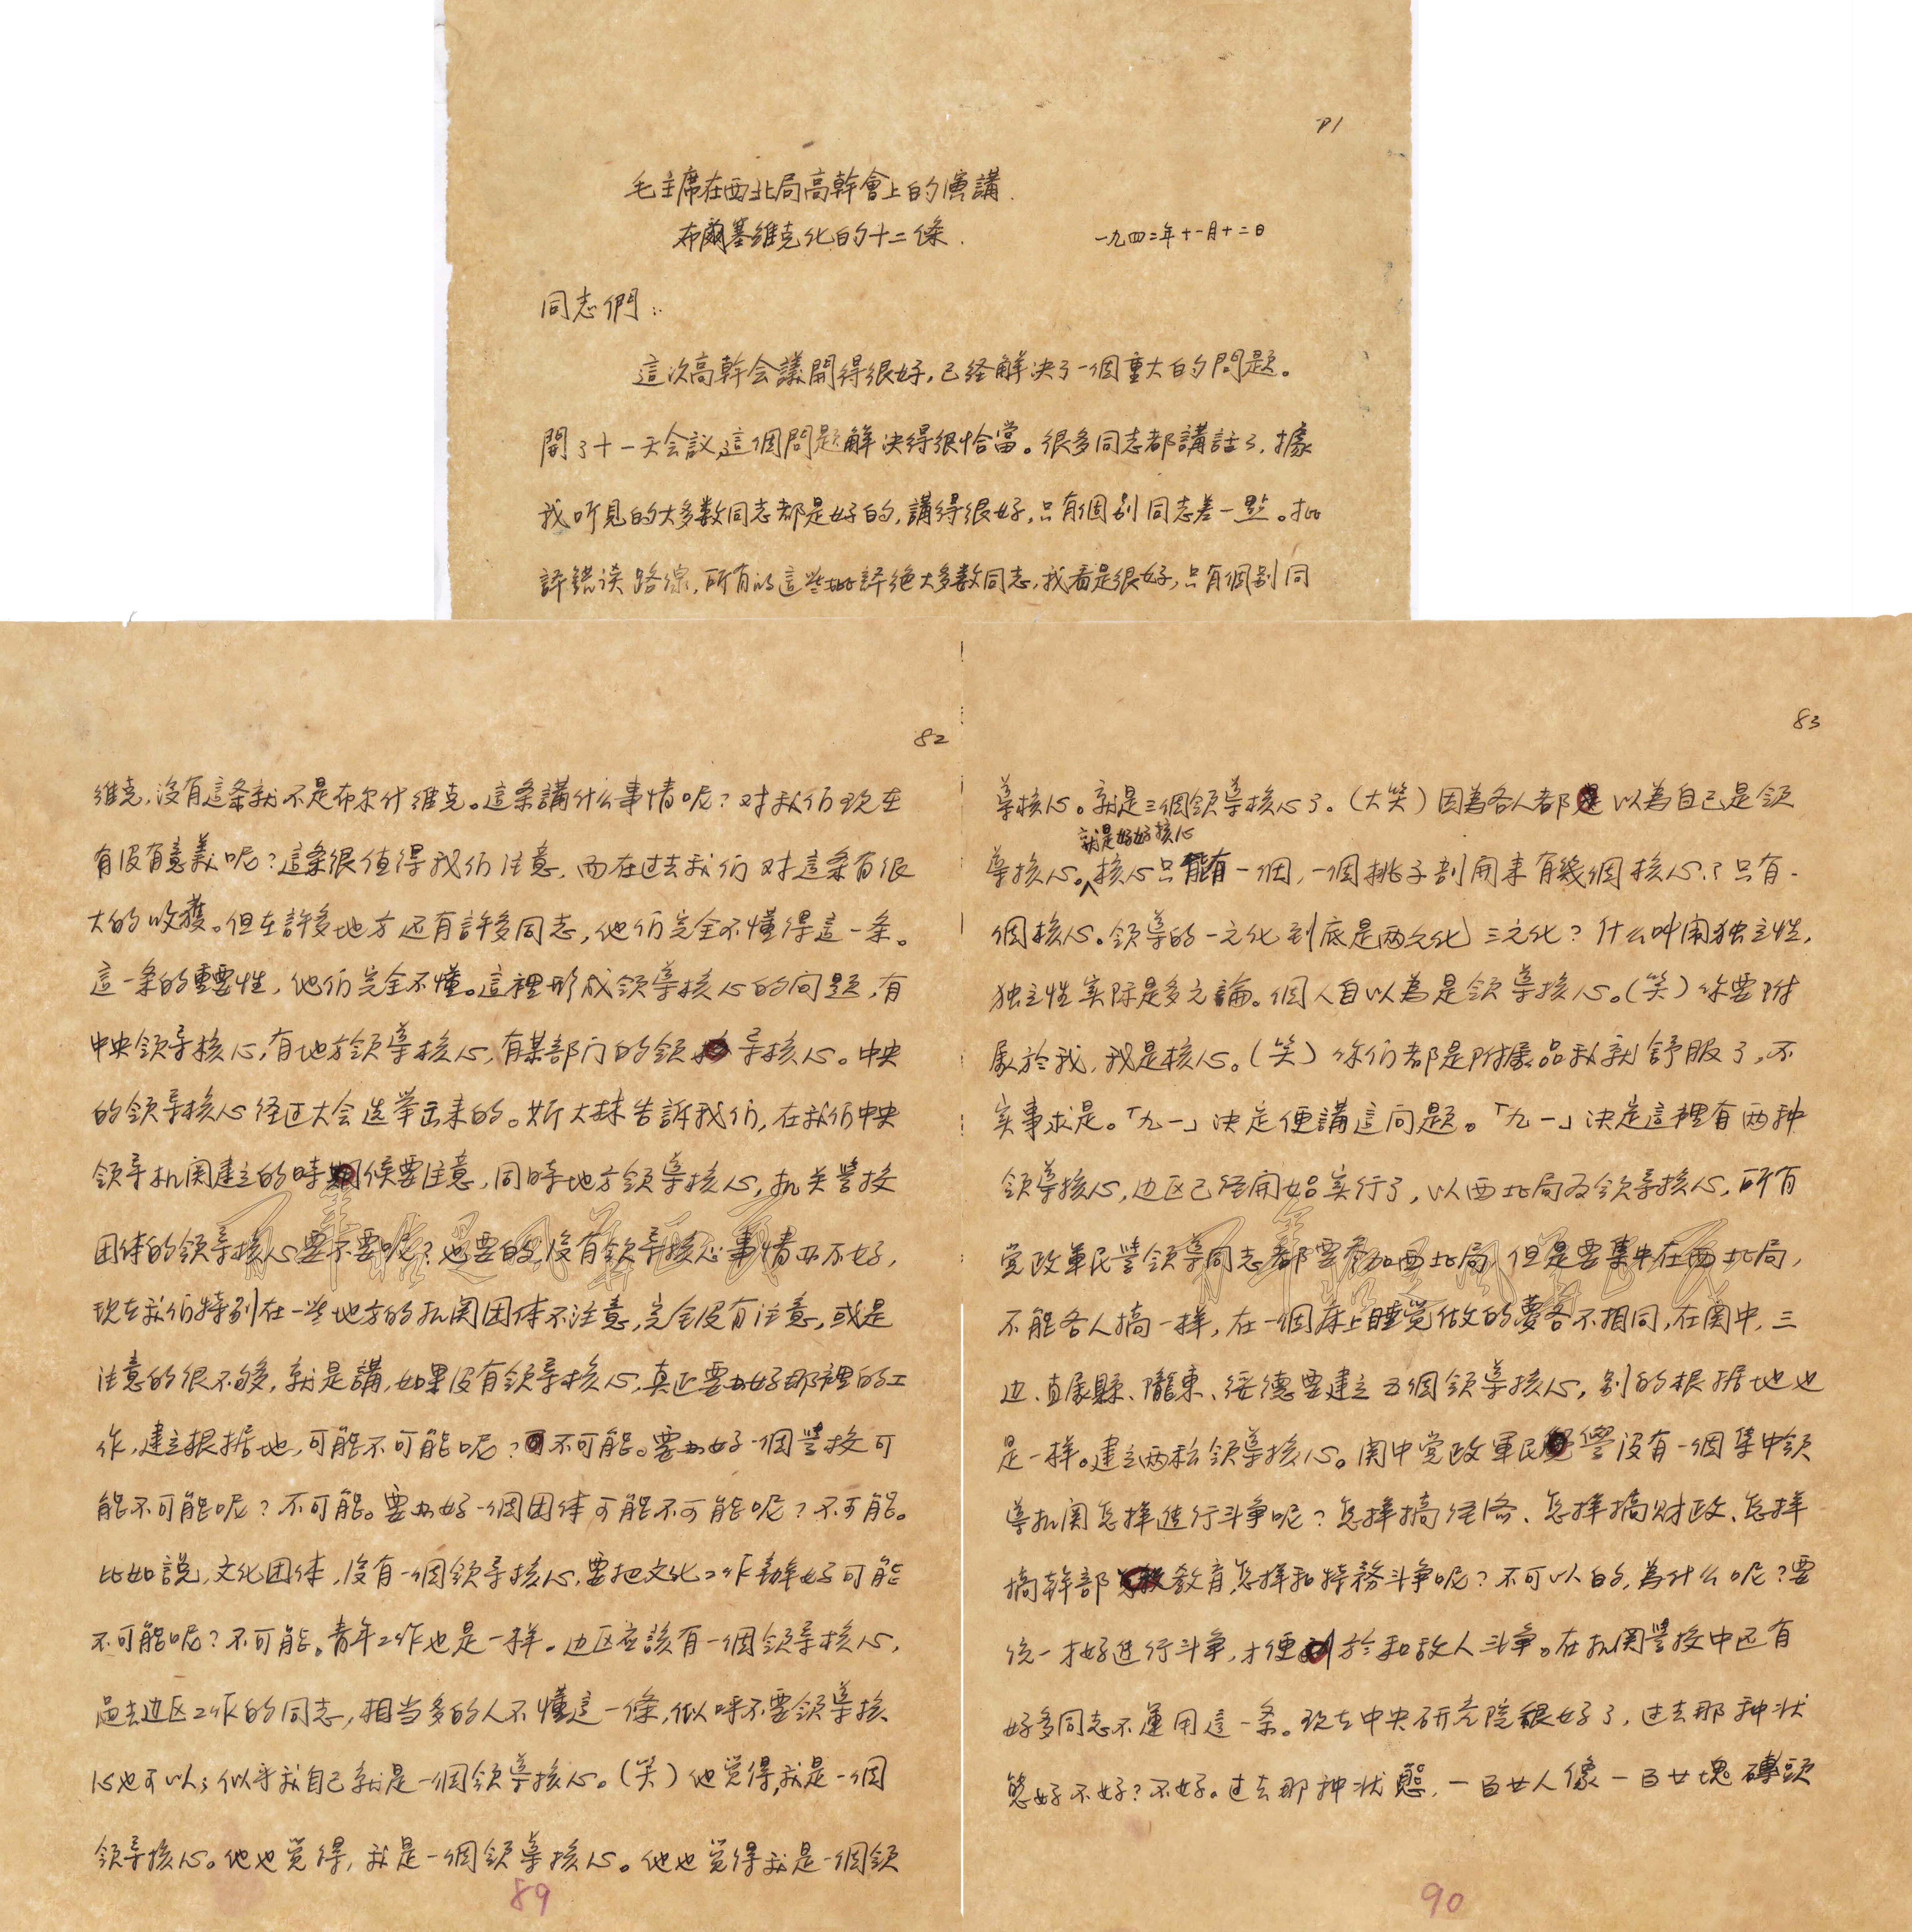 P1
毛主席在西北局高幹會上的演講.
布爾塞維克化的十二條.
一九四二年十一月十二日
同志們:
這次高幹会議開得很好,已经解决了一個重大的問题。
開了十一天会议,這個問题解决得很恰當。很多同志都講話了,據
我听見的大多数同志都是好的,講得很好,只有個别同志差一點。批
評錯误路線,所有的這些批評绝大多数同志,我看是很好,只有個别同
82
維克,没有這条就不是布尔什維克。這条講什么事情呢?对我们现在
有没有意義呢?這条很值得我们注意,而在过去我们对這条有很
大的收獲。但在許多地方还有許多同志,他们完全不懂得這一条。
這一条的重要性,他们完全不懂。這裡形成领导核心的问题,有
中央领导核心,有地方领導核心,有某部门的领导核心。中央
的领导核心经过大会选举出来的。斯大林告訴我们,在我们中央
领导机関建立的時候要注意,同時地方领導核心,机关學校
团体的领导核心要不要呢?也要的,没有领导核心事情办不好,
现在我们特别在一些地方的机関团体不注意,完全没有注意,或是
注意的很不够,就是講,如果没有领导核心,真正要办好那裡的工
作,建立根据地,可能不可能呢?不可能。要办好一個學校可
能不可能呢?不可能。要办好一個团体可能不可能呢?不可能。
比如說,文化团体,没有一個领导核心,要把文化工作辦好可能
不可能呢?不可能。青年工作也是一样。边区应該有一個领导核心,
過去边区工作的同志,相当多的人不懂這一條,似呼不要领導核
心也可以;似乎我自己就是一個领導核心。(笑)他觉得,我是一個
领导核心。他也觉得,我是一個领導核心。他也觉得我是一個领
89
83
導核心。就是三個领導核心了。(大笑)因為各人都以為自己是领
就是好好核心
導核心。核心只能有一個,一個桃子剖開来有幾個核心?只有一
個核心。领導的一元化到底是两元化、三元化?什么叫闹独立性,
独立性实际是多元論。個人自以為是领導核心。(笑)你要附
属於我,我是核心。(笑)你们都是附属品我就舒服了,不
实事求是。「九一」决定便講這问题。「九一」决定這裡有两种
领導核心,边区已经開始实行了,以西北局为领導核心,所有
党政軍民學领導同志都要参加西北局,但是要集中在西北局,
不能各人搞一样,在一個床上睡觉做的夢各不相同,在関中,三
边、直属縣、隴東、绥德要建立五個领導核心,别的根据地也
是一样。建立两种领導核心。関中党政軍民學没有一個集中领
導机関怎样進行斗争呢?怎样搞经济、怎样搞财政、怎样
搞幹部教育,怎样和特務斗争呢?不可以的,為什么呢?要
统一才好進行斗争,才便於和敌人斗争。在机関學校中还有
好多同志不運用這一条。现在中央研究院很好了,过去那种状
態好不好?不好。过去那种状態,一百廿人像一百廿塊磚頭
90